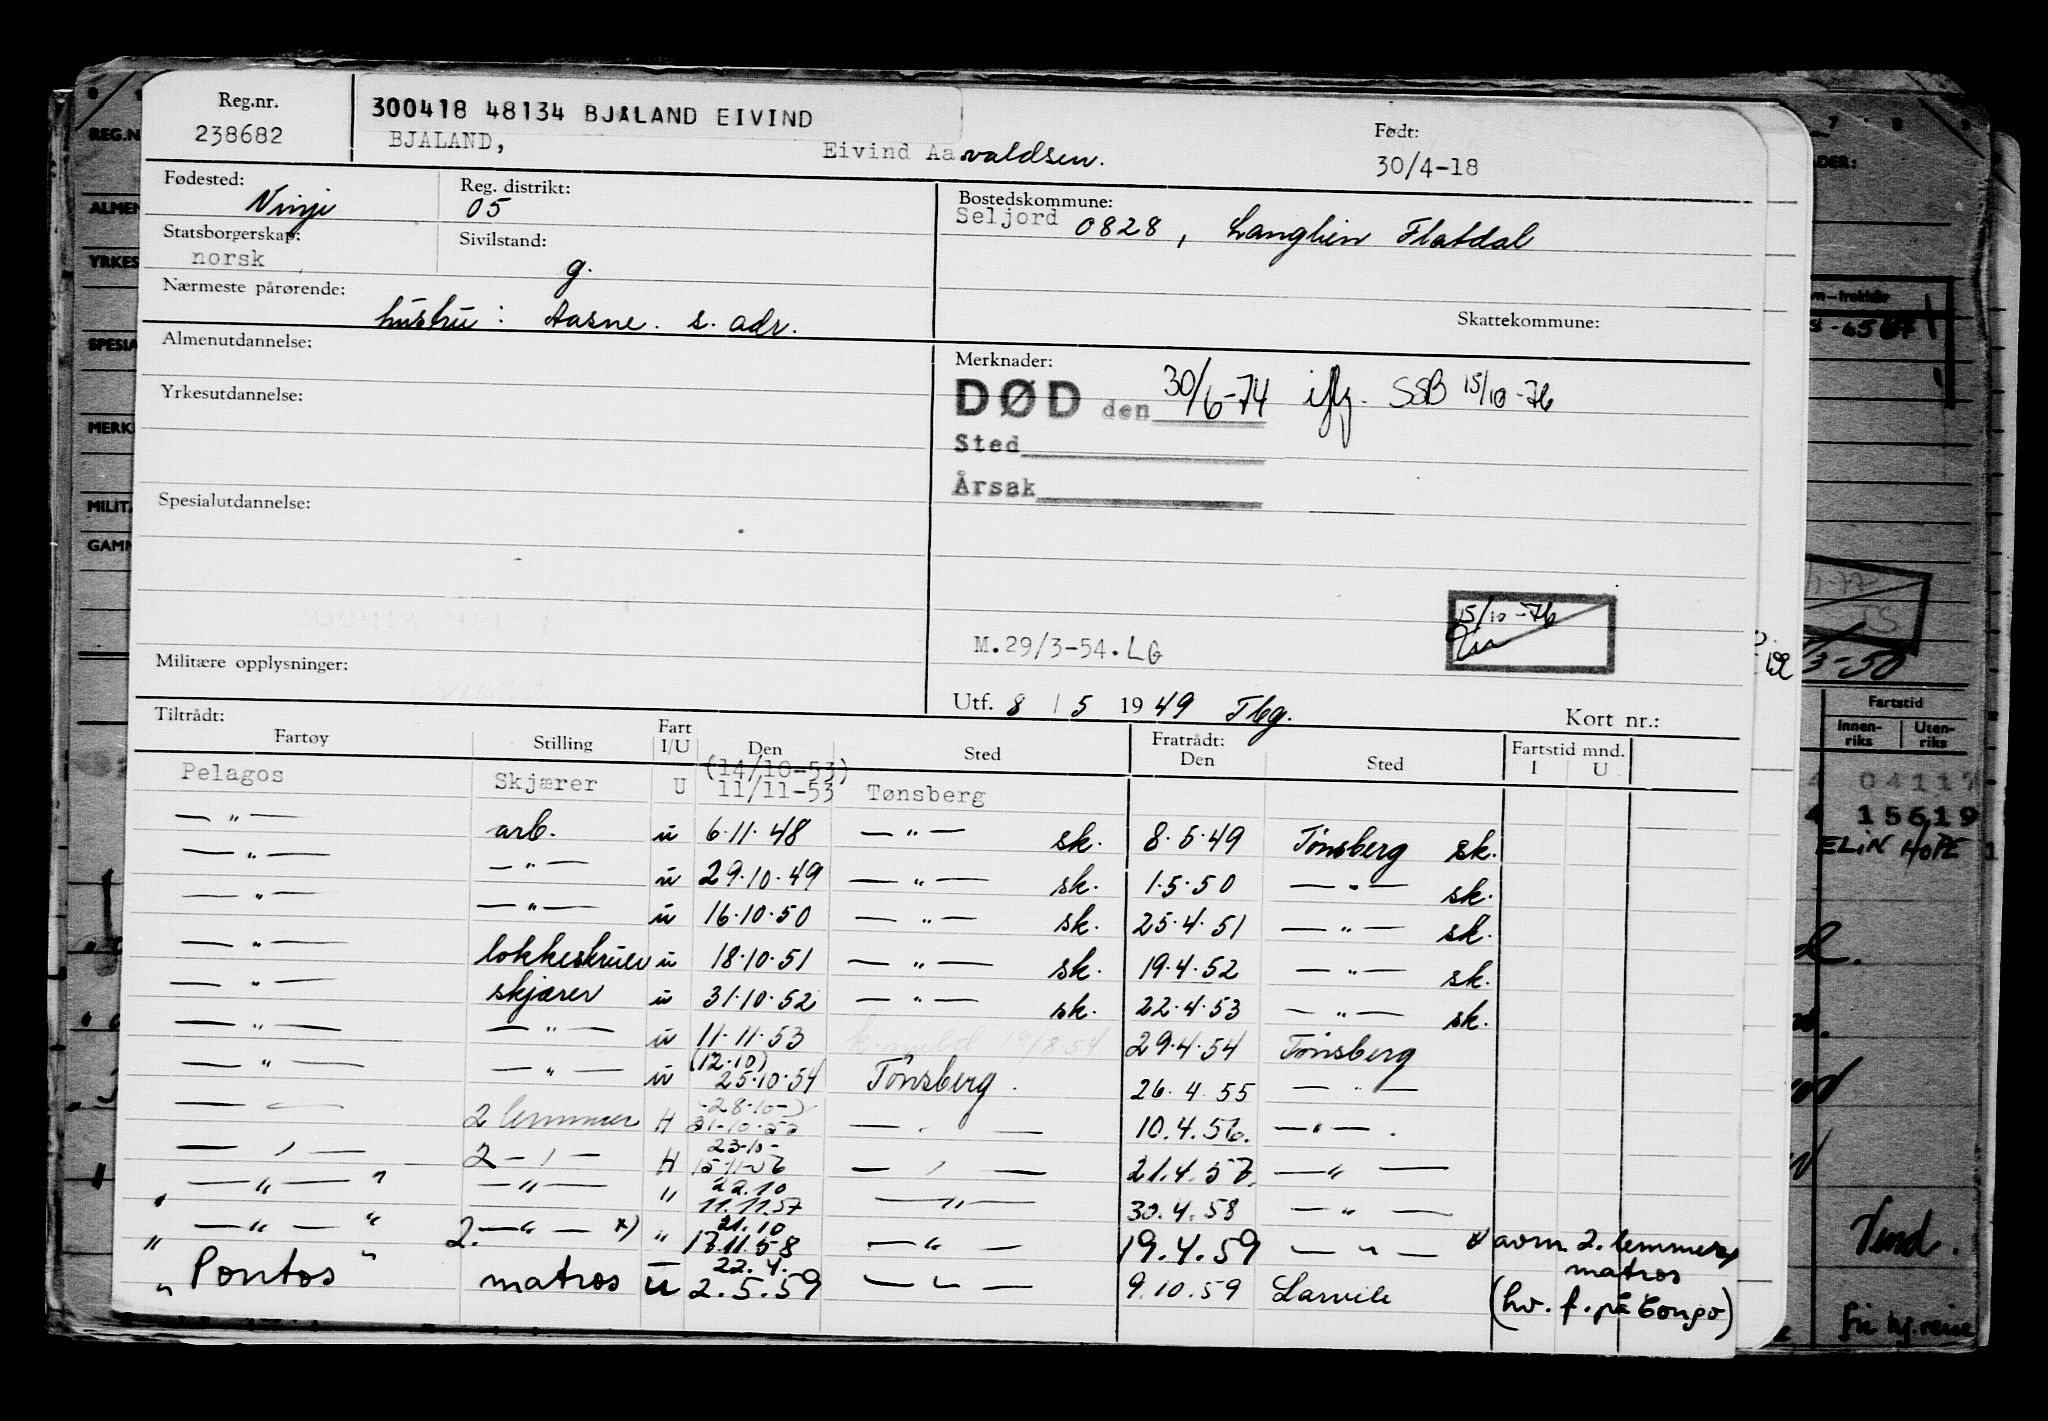 Reg.nr.
238682
300418 48134 BJÅLAND EIVIND
BJÅLAND, Eivind Aavaldsen.
Født:
30/4-18
Fødested: Vinje
Reg. distrikt: 05
Bostedskommune:
Seljord 0828, Langlien Flatdal
Statsborgerskap: norsk
Sivilstand: g.
Nærmeste pårørende:
hustru: Aasne. s. adr.
Skattekommune:
Almenutdannelse:
Merknader:
DØD den 30/6-74 iflg. SSB 15/10-76
Yrkesutdannelse:
Sted
Årsak
Spesialutdannelse:
15/10-76
M.29/3-54.LG
Militære opplysninger:
Utf. 8 / 5 1949 Tbg.
Kort nr.:
Tiltrådt: Fratrådt:
Fartøy Stilling Fart I/U Den Sted Den Sted Fartstid mnd. I U
Pelagos Skjærer U (14/10-53) 11/11-53 Tønsberg
— " — arb. u 6.11.48 — " — sk. 8.5.49 Tønsberg sk.
— " — — " — u 29.10.49 — " — sk. 1.5.50 — " — sk.
— " — — " — u 16.10.50 — " — sk. 25.4.51 — " — sk.
— " — lokkeskruer u 18.10.51 — " — sk. 19.4.52 — " — sk.
— " — skjærer u 31.10.52 — " — sk. 22.4.53 — " — sk.
— " — — " — u 11.11.53 29.4.54 Tønsberg
— " — — " — u (12.10) 25.10.54 Tønsberg. 26.4.55 — " —
— " — 2 lemmer H 28.10- 31-10-55 — " — 10.4.56. — " — .
— " — 2 — " — H 23-10- 15-11-56 — " — 21.4.57. — " —
" — " — " — " — " 22.10 11.11.57 — " — 30.4.58 — " —
" — " — " 2. — " — x) " 21.10 17.11.58 — " — 19.4.59 — " — x avm. 2. lemmer
matros
" Pontos " matros u 22.4. 2.5.59 — " — 9.10.59 Larvik (hv. f. på Congo)
REG.N
ALMEN
YRKES
SPESIA
MERK
MILITÆ
GAMM
Fartstid
Innenriks Utenriks
04117
15619
ELIN HOPE
3-50